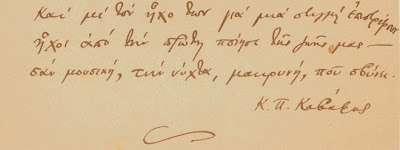 Καὶ μὲ τὸν ἦχο των γιὰ μιὰ στιγμὴ ἐπιστρέφουν
ἦχοι ἀπὸ τὴν πρώτη ποίησι τῆς ζωῆς μας —
σὰν μουσική, τὴν νύχτα, μακρυνή, ποὺ σβύνει.
Κ. Π. Καβάφης